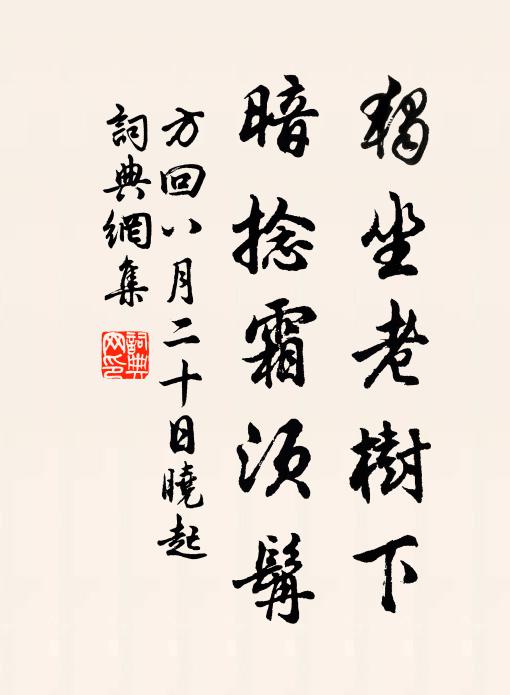 獨坐老樹下
暗捻霜須髯
方回八月二十日曉起
詞典網集
詞典網印